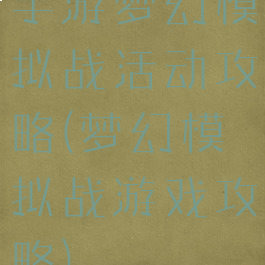 手游梦幻模
拟战活动攻
略(梦幻模
拟战游戏攻
略)